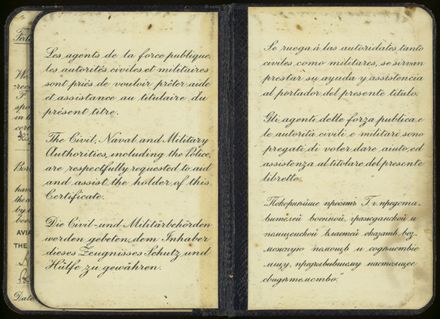 Les agents de la force publique,
les autorités civiles et militaires
sont priés de vouloir prêter aide
et assistance au titulaire du
présent titre.
The Civil, Naval and Military
Authorities, including the Police,
are respectfully requested to aid
and assist the holder of this
Certificate.
Die Civil- und Militärbehörden
werden gebeten, dem Inhaber
dieses Zeugnisses Schutz und
Hülfe zu gewähren.
Se ruega á las autoridades, tanto
civiles como militares, se sirvan
prestar su ayuda y assistencia
al portador del presente titulo.
Gli agenti delle forza publica e
le autorità civili e militari sono
pregati di voler dare aiuto, ed
assistenza al titolare del presente
libretto.
Покорнѣйше просятъ Гг. предста-
вителей военной, гражданской и
полицейской властей оказать воз-
можную помощь и содѣйствіе
лицу, предъявившему настоящее
свидѣтельство.
AVIA
THE
Date